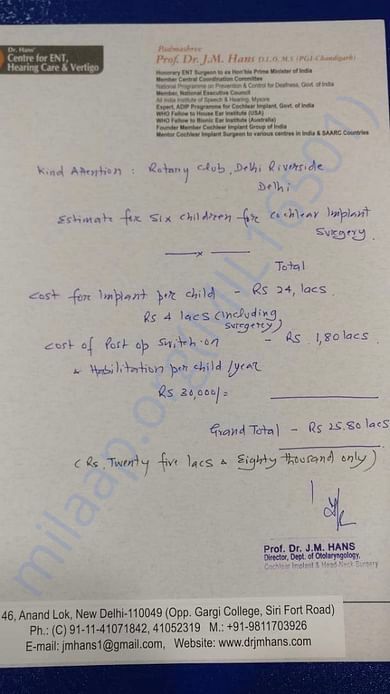 Dr. Hans'
Centre for ENT,
Hearing Care & Vertigo
Padmashree
Prof. Dr. J.M. Hans D.L.O, M.S (PGI-Chandigarh)
Honorary ENT Surgeon to ex Hon'ble Prime Minister of India
Member Central Coordination Committee
National Programme on Prevention & Control for Deafness, Govt. of India
Member, National Executive Council
All India Institute of Speech & Hearing, Mysore
Expert, ADIP Programme for Cochlear Implant, Govt. of India
WHO Fellow to House Ear Institute (USA)
WHO Fellow to Bionic Ear Institute (Australia)
Founder Member Cochlear Implant Group of India
Mentor Cochlear Implant Surgeon to various centres in India & SAARC Countries
Kind Attention : Rotary Club, Delhi Riverside
Delhi
Estimate for six children for cochlear Implant
Surgery
Total
Cost for Implant per child - Rs 24, lacs
Rs 4 lacs (including
surgery)
Cost of Post op switch-on - Rs. 1,80 lacs
& Habilitation per child / year
Rs 30,000/=
Grand Total - Rs 25.80 lacs
(Rs. Twenty five lacs & Eighty thousand only)
Prof. Dr. J.M. HANS
Director, Dept. of Otolaryngology,
Cochlear Implant & Head-Neck Surgery
46, Anand Lok, New Delhi-110049 (Opp. Gargi College, Siri Fort Road)
Ph.: (C) 91-11-41071842, 41052319 M.: +91-9811703926
E-mail: jmhans1@gmail.com, Website: www.drjmhans.com